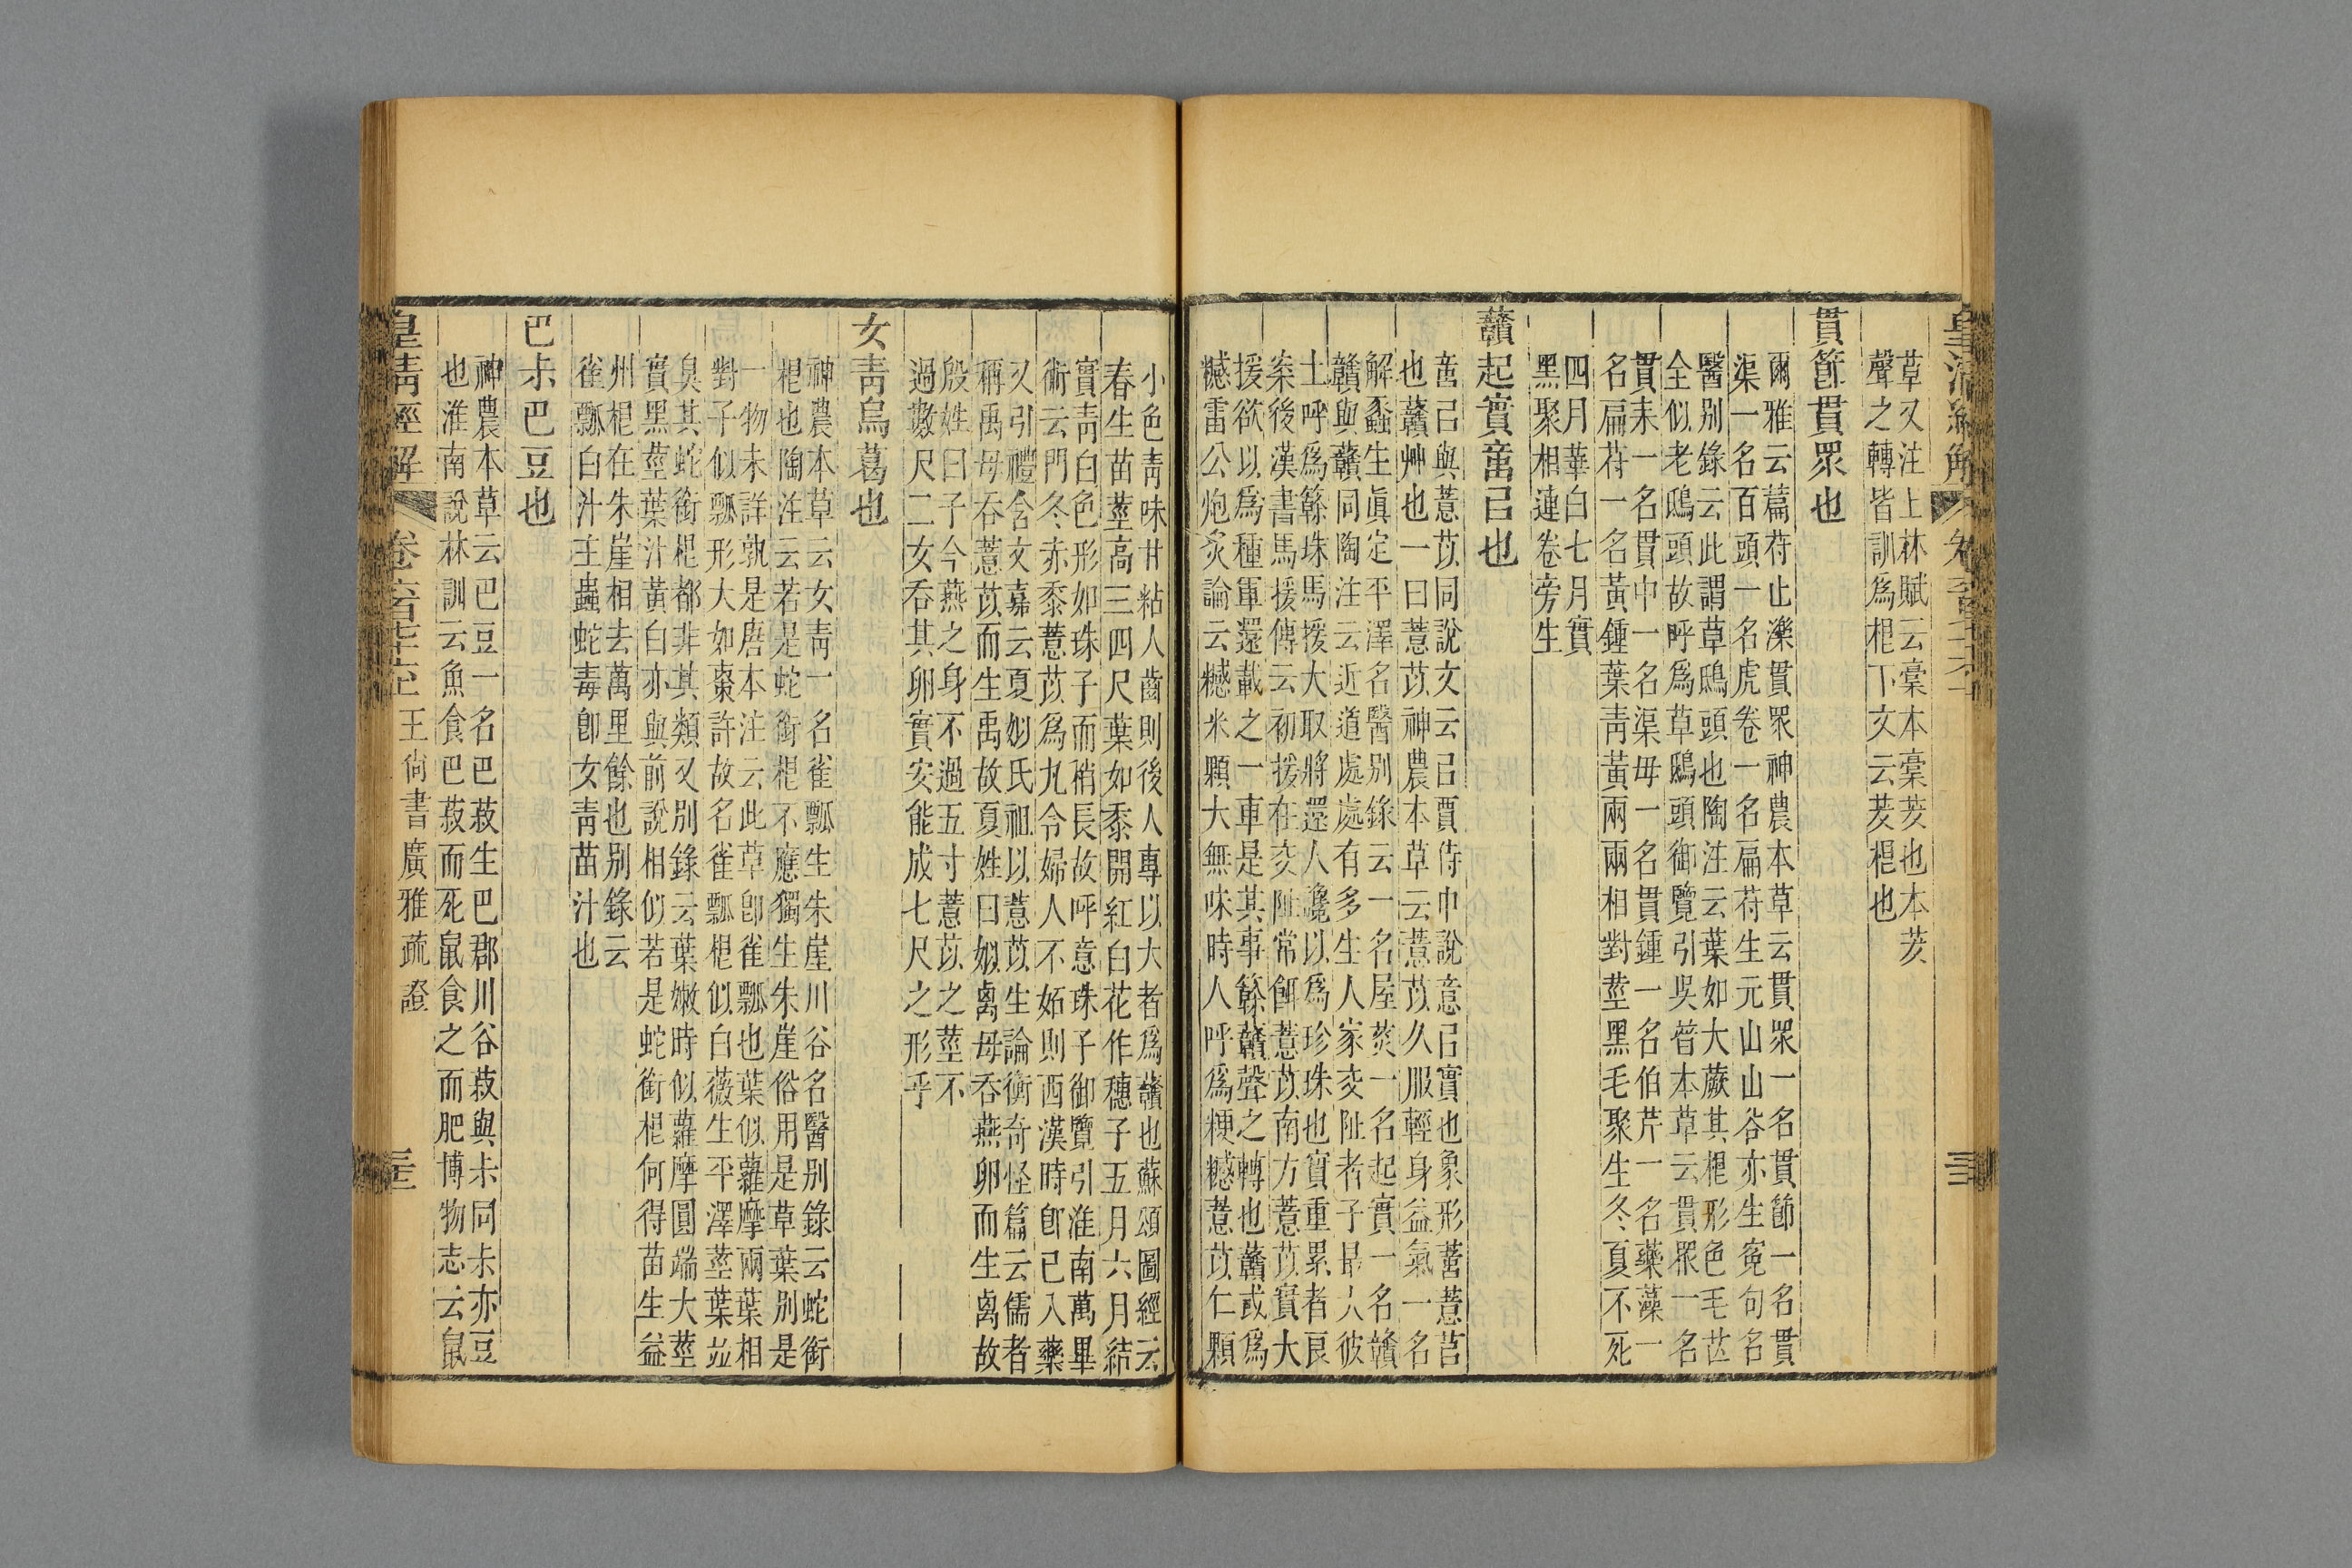 草又注上林賦云藁本藁茇也本茇
聲之轉皆訓爲棍下文云茇棍也
貫節貫眾也
爾雅云篇苻止濼貫眾神農本草云貫眾一名貫節一名貫
渠一名百頭一名虎卷一名扁苻生元山山谷亦生冤句名
醫别錄云此謂草鴟頭也陶注云葉如大蕨其棍形色毛芒
全似老鴟頭故呼爲草鴟頭御覽引吳普本草云貫眾一名
貫來一名貫中一名渠母一名貫鍾一名伯芹一名藥藻一
名扁苻一名黃鍾葉靑黃兩兩相對莖黑毛聚生冬夏不死
四月華白七月實
黑聚相連卷旁生
贛起實䔮㠯也
䔮㠯與薏苡同說文云㠯賈侍中說意㠯實也象形䔮薏苢
也贛艸也一曰薏苡神農本草云薏苡久服輕身益氣一名
解蠡生眞定平澤名醫别錄云一名屋菼一名起實一名贛
贛與贛同陶注云近道處處有多生人家交阯者子最大彼
土呼爲簳珠馬援大取將還人讒以爲珍珠也實重累者良
案後漢書馬援傳云初援在交阯常餌薏苡南方薏苡實大
援欲以爲種軍還載之一車是其事簳贛聲之轉也贛或爲
𥽇雷公炮炙論云𥽇米顆大無味時人呼爲粳𥽇薏苡仁顆
小色靑味甘粘人齒則後人專以大者爲贛也蘇頌圖經云
春生苗莖高三四尺葉如黍開紅白花作穗子五月六月結
實靑白色形如珠子而稍長故呼意珠子御覽引淮南萬畢
術云門冬赤黍薏苡爲丸令婦人不妬則西漢時卽已入藥
又引禮含文嘉云夏姒氏祖以薏苡生論衡奇怪篇云儒者
稱禹母吞薏苡而生禹故夏姓曰姒禼母吞燕卵而生禼故
殷姓曰子今燕之身不過五寸薏苡之莖不
過數尺二女吞其卵實安能成七尺之形乎
女靑烏葛也
神農本草云女靑一名雀瓢生朱崖川谷名醫别錄云蛇銜
棍也陶注云若是蛇銜棍不應獨生朱崖俗用是草葉别是
一物未詳孰是唐本注云此草卽雀瓢也葉似蘿摩兩葉相
對子似瓢形大如棗許故名雀瓢棍似白薇生平澤莖葉竝
臭其蛇銜棍都非其類又别錄云葉嫩時似蘿摩圓端大莖
實黑莖葉汁黃白亦與前說相似若是蛇銜棍何得苗生益
州棍在朱崖相去萬里餘也别錄云
雀瓢白汁主蟲蛇毒卽女靑苗汁也
巴尗巴豆也
神農本草云巴豆一名巴菽生巴郡川谷菽與尗同尗亦豆
也淮南說林訓云魚食巴菽而死鼠食之而肥博物志云鼠
皇靑經解 卷六百七十六 王尙書廣雅疏證